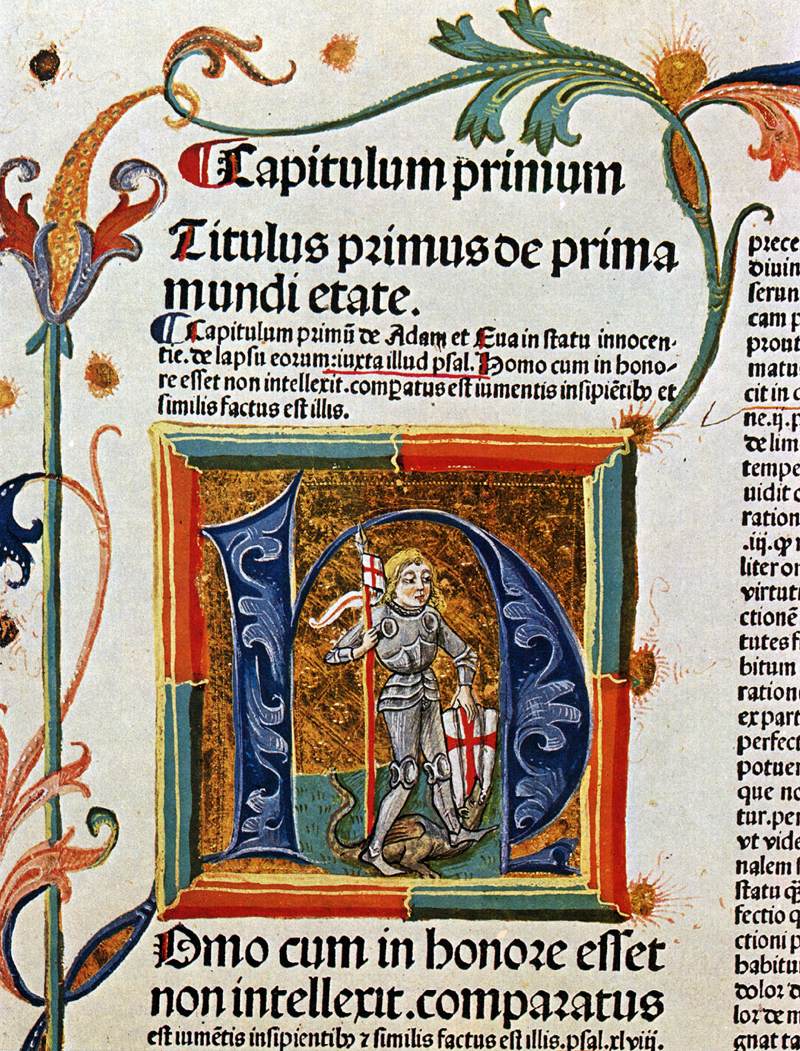 Capitulum primum
Titulus primus de prima
mundi etate.
Capitulum primū de Adam et Eua in statu innocen-
tie. de lapsu eorum: iuxta illud psal. Homo cum in hono-
re esset non intellexit. comꝑatus est iumentis insipiētibꝰ et
similis factus est illis.
Homo cum in honore esset
non intellexit. comparatus
est iumētis insipientibꝰ ⁊ similis factus est illis. psal. xlviij.
prece
diuin
serun
cam p
prout
matus
cit in c
ne. ij. p
de lim
tempe
uidit c
ration
.iij. ꝙ
liter on
virtuti
ctionē
tutes f
bitum
ration
ex part
perfect
potuer
que no
tur. per
vt vide
nalem
statu
fectio q
ctioni p
habitu
dolor d
lor de m
gnat ta